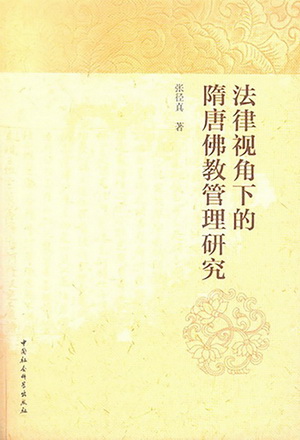 法律视角下的
隋唐佛教管理研究
张径真 著
中国社会科学出版社